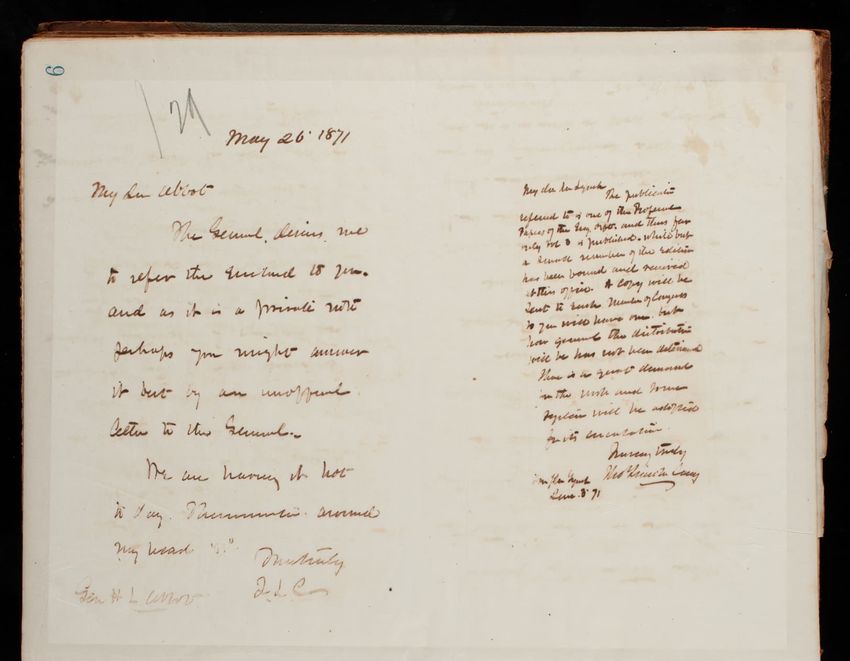 6
129
May 26 1871
My dear Abbot
The General desires me
to refer the enclosed to you.
and as it is a private note
perhaps you might answer
it best by an unofficial
letter to the General.
We are having it hot
to day. Thermometer around
my head
Yours truly
T. L. C.
Gen H L Abbot
My dear Lynch The publication
referred to is one of the Professional
Papers of the Eng. Corps. and thus far
only is published. while but
a number of the edition
has been bound and received
at this office. A copy will be
sent to each Member of Congress
so you will have one. but
how general the distribution
will be has not been determined
There is a great demand
for the work and some
system will be adopted
for its circulation.
Yours very truly
Thos Lincoln Casey
Lynch
June 3 71